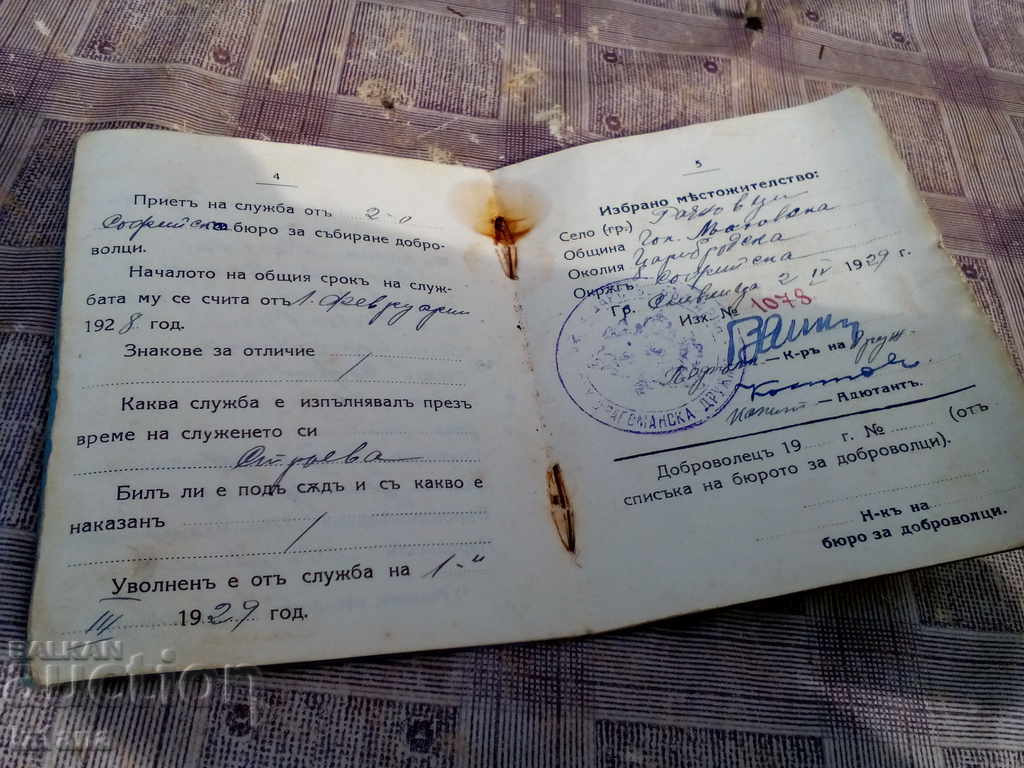 4
Приетъ на служба отъ 2-о
Софийско бюро за събиране добро-
волци.
Началото на общия срокъ на служ-
бата му се счита отъ 1. февруари
1928 год.
Знакове за отличие /
Каква служба е изпълнявалъ презъ
време на служенето си
Строева
Билъ ли е подъ сѫдъ и съ какво е
наказанъ
/
Уволненъ е отъ служба на 1-и
III 1929 год.
5
Избрано мѣстожителство:
Село (гр.)
Община Гол.
Околия Царибродска
Окрѫгъ Софийска
Гр. Сливница 2 IV 1929 г.
Изх. № 1078
— К-ръ на друж.
Капит. — Адютантъ.
ДРАГОМАНСКА ДРУЖ
Доброволецъ 19 г. № (отъ
списъка на бюрото за доброволци).
Н-къ на
бюро за доброволци.
BALKAN
auction